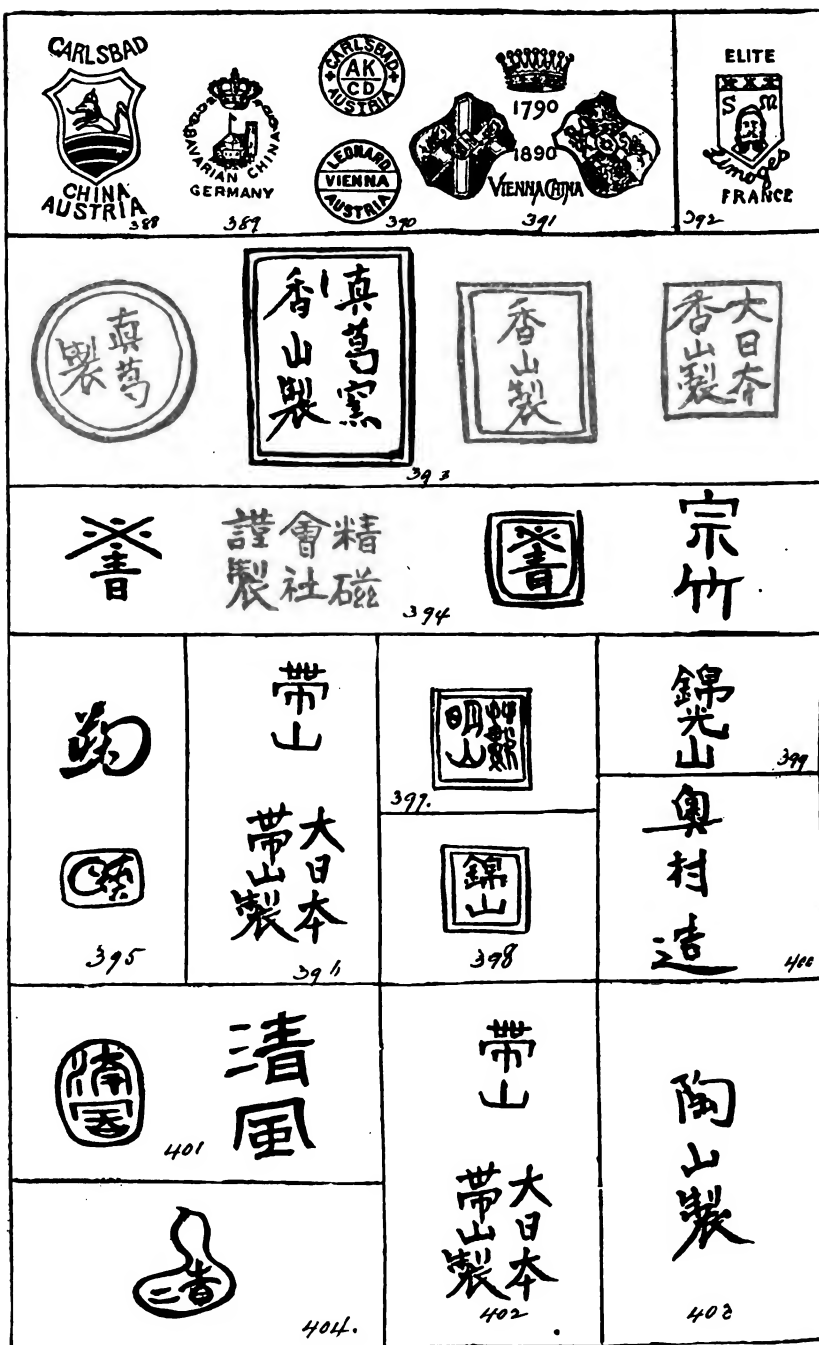 CARLSBAD
CHINA
AUSTRIA
388
BAVARIAN CHINA
GERMANY
389
CARLSBAD
AK
CD
AUSTRIA
LEONARD
VIENNA
AUSTRIA
390
1790
1890
VIENNA CHINA
391
ELITE
S M
Limoges
FRANCE
392
真葛
製
真葛窯
香山製
香山製
大日本
香山製
393
春
精磁
會社
謹製
394
春
宗竹
395
帯山
大日本
帯山製
396
397.
錦山
398
錦光山
399
奥村造
400
清風
清風
401
帯山
大日本
帯山製
402
陶山製
403
404.